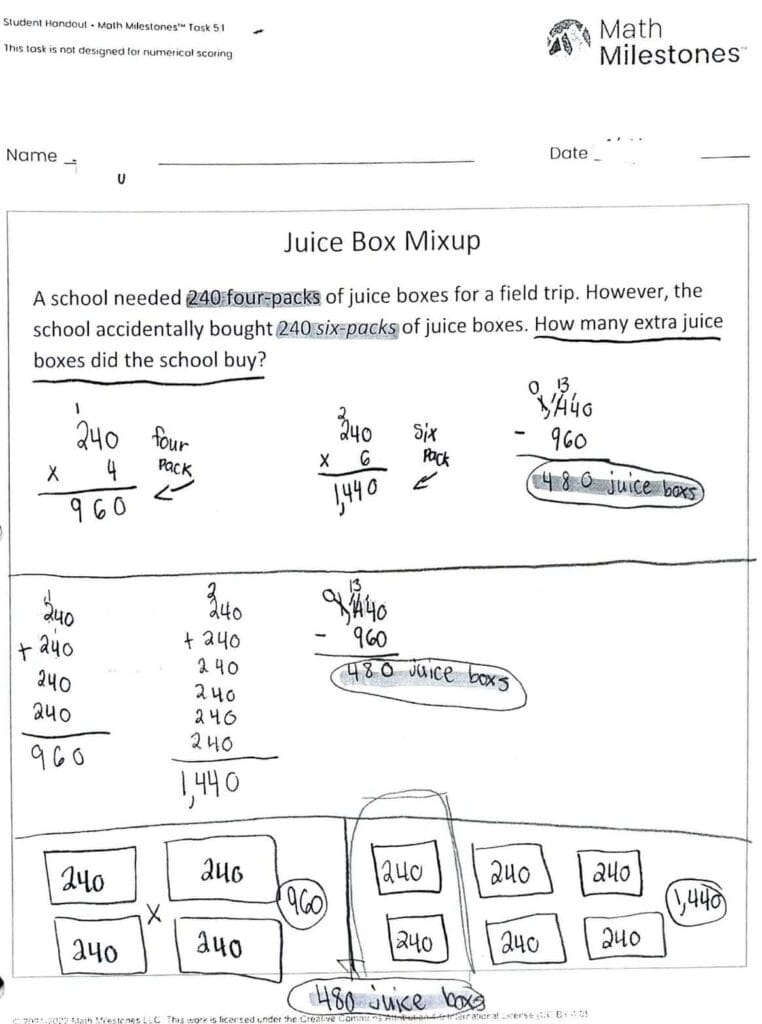 Student Handout • Math Milestones™ Task 5:1
This task is not designed for numerical scoring
Math
Milestones™
Name
Date
Juice Box Mixup
A school needed 240 four-packs of juice boxes for a field trip. However, the
school accidentally bought 240 six-packs of juice boxes. How many extra juice
boxes did the school buy?
1
240 four
x 4 pack
960
2
240 six
x 6 pack
1,440
0 13
1,440
- 960
480 juice boxs
1
240
+ 240
240
240
960
2
240
+ 240
240
240
240
240
1,440
0 13
1,440
- 960
480 juice boxs
240 240
x 960
240 240
240 240 240
1,440
240 240 240
480 juice boxs
© 2021-2022 Math Milestones LLC. This work is licensed under the Creative Commons Attribution 4.0 International License (CC BY 4.0)